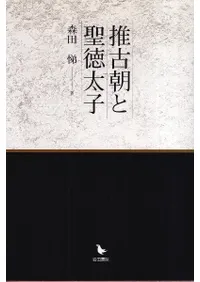 推古朝と
聖徳太子
森田 悌